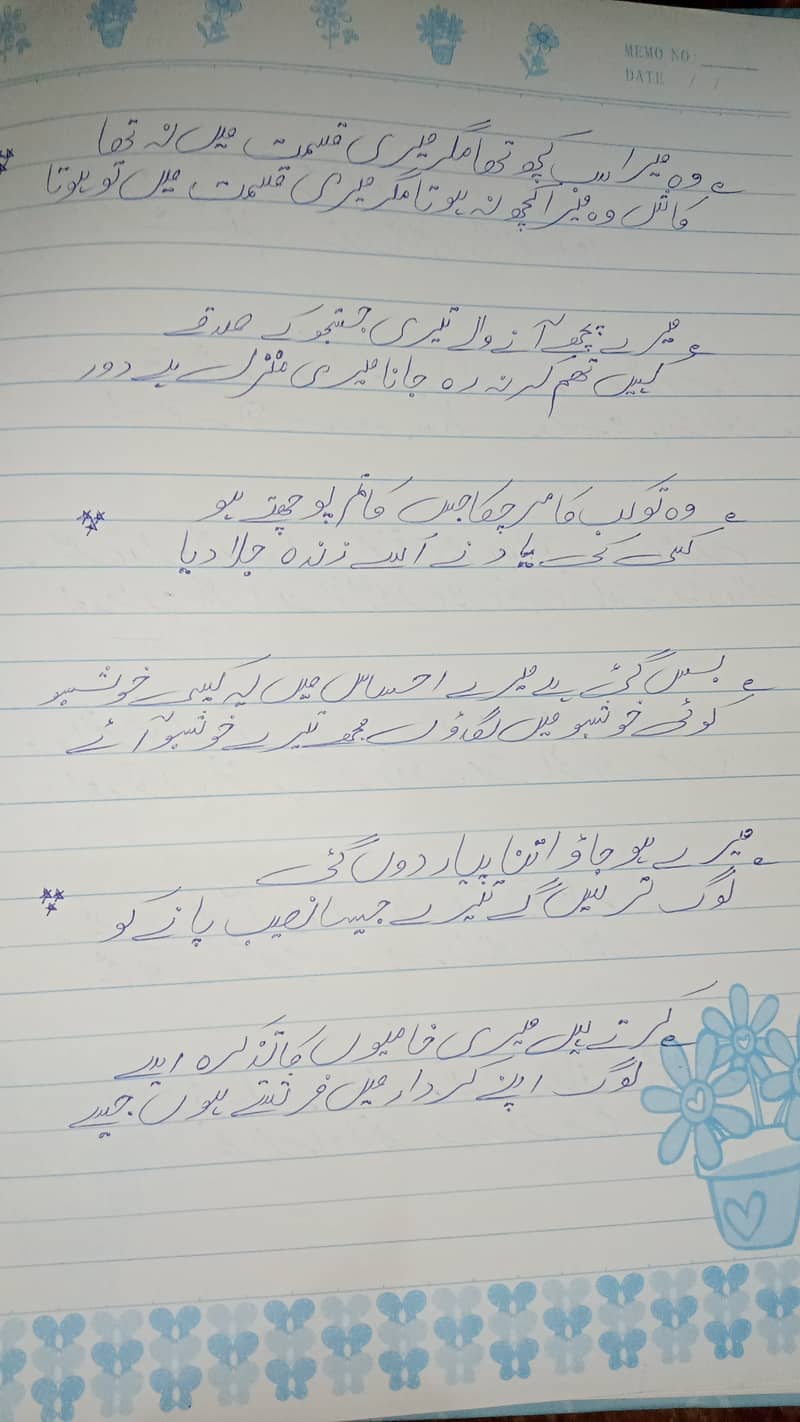 MEMO NO
DATE / /
وہ میرا سب کچھ تھا مگر میری قسمت میں نہ تھا
کاش وہ میرا کچھ نہ ہوتا مگر میری قسمت میں تو ہوتا
میرے پیچھے آنے والے تیری جستجو کے صدقے
کہیں تھم کر نہ رہ جانا میری منزل ہے دور
وہ تو کب کا مر چکا جس کا تم پوچھتے ہو
کسی کی یاد نے اسے زندہ جلا دیا
بس گئی ہے میرے احساس میں یہ کیسی خوشبو
کوئی خوشبو میں لگاؤں مجھے تیرے خوشبو آئے
میرے ہو جاؤ اتنا پیار دوں گئی
لوگ ترسیں گے تیرے جیسا نصیب پانے کو
کرتے ہیں میری خامیوں کا تذکرہ ایسے
لوگ اپنے کردار میں فرشتے ہوں جیسے